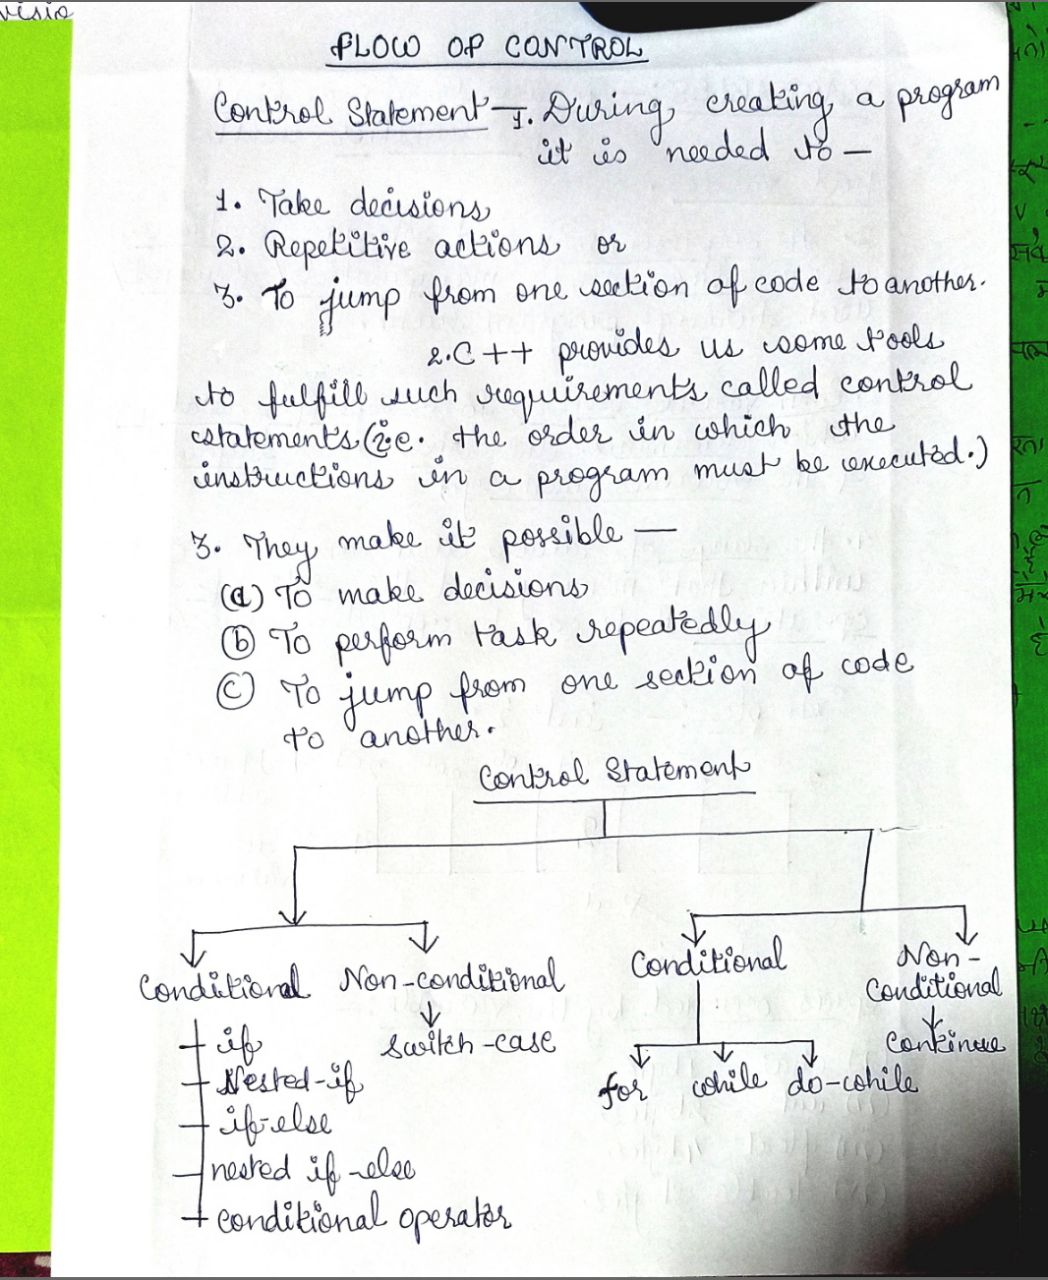 FLOW OF CONTROL
Control Statement - 1. During creating a program
it is needed to -
1. Take decisions
2. Repetitive actions or
3. To jump from one section of code to another.
2. C ++ provides us some tools
to fulfill such requirements called control
statements (i.e. the order in which the
instructions in a program must be executed.)
3. They make it possible -
(a) To make decisions
(b) To perform task repeatedly
(c) To jump from one section of code
to another.
Control Statement
Conditional Non-conditional Conditional Non-
Conditional
if switch-case continue
Nested-if for while do-while
if-else
nested if-else
conditional operator